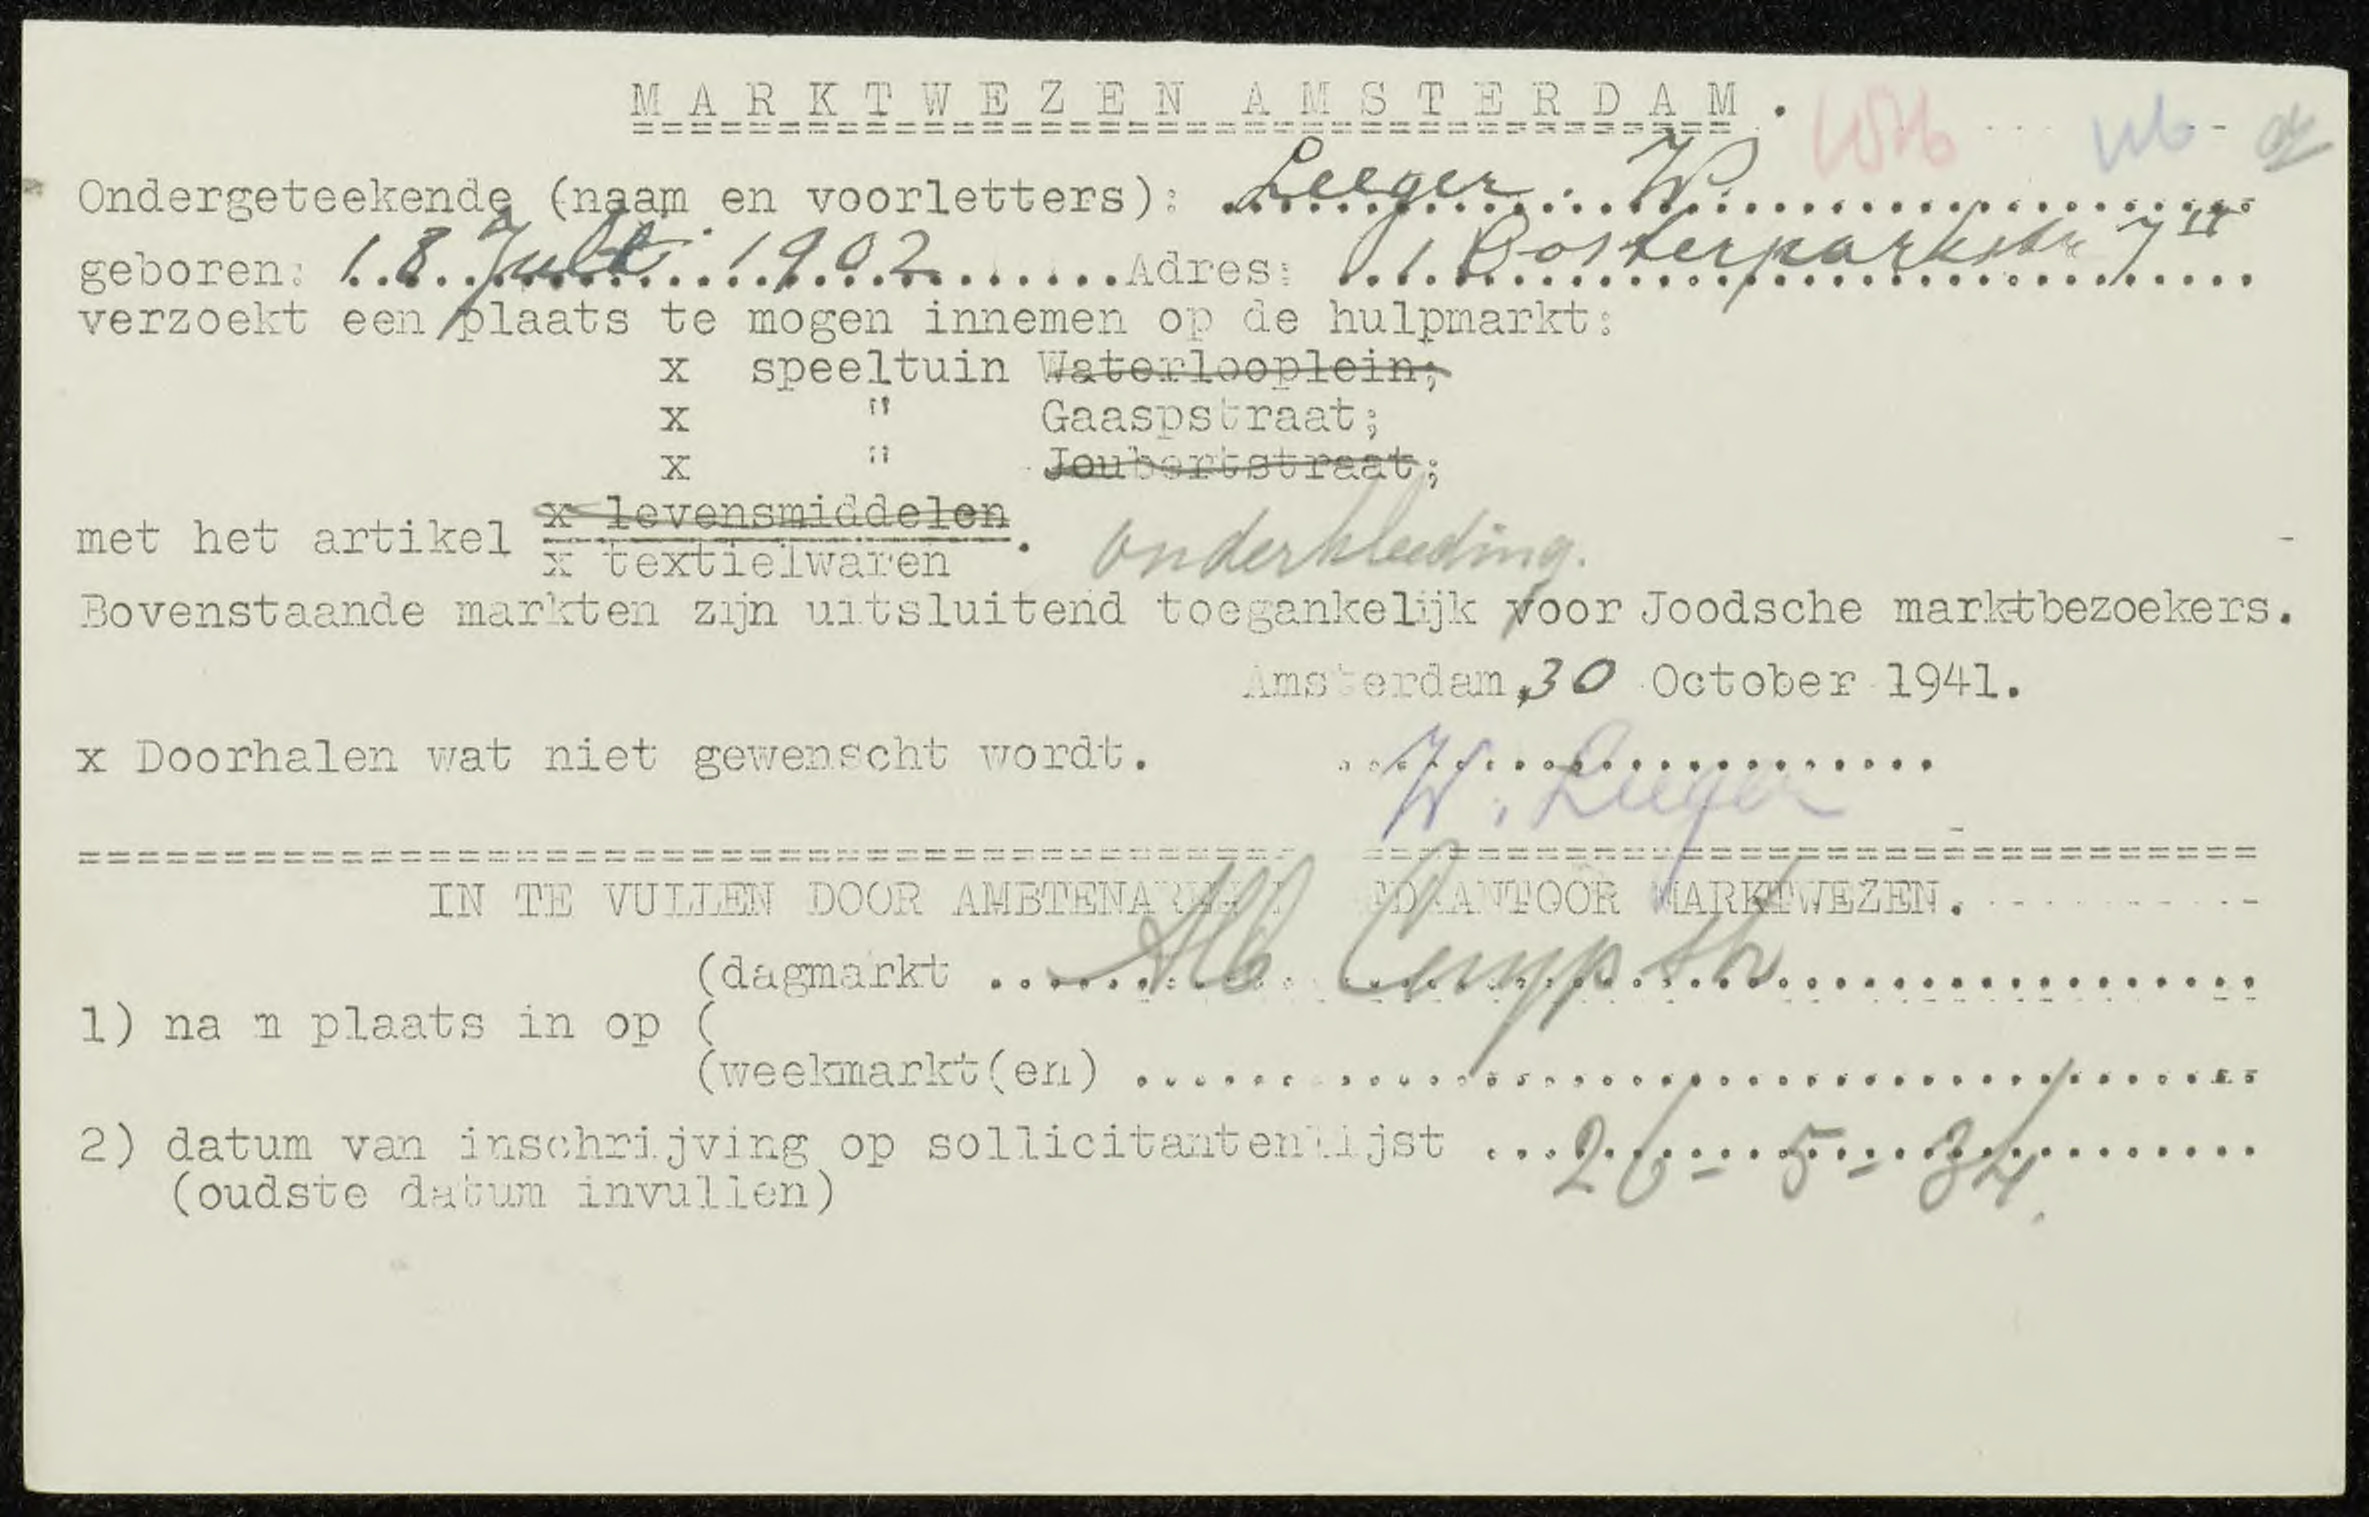 MARKTWEZEN AMSTERDAM.
Ondergeteekende (naam en voorletters): Leeger. W.
geboren: 18 Juli 1902 Adres: 1 Oosterparkstr 7 II
verzoekt een plaats te mogen innemen op de hulpmarkt:
x speeltuin Waterlooplein;
x " Gaaspstraat;
x " Joubertstraat;
x levensmiddelen
met het artikel . onderkleeding.
x textielwaren
Bovenstaande markten zijn uitsluitend toegankelijk voor Joodsche marktbezoekers.
Amsterdam, 30 October 1941.
x Doorhalen wat niet gewenscht wordt.
W. Leeger
IN TE VULLEN DOOR AMBTENAREN HOOFDKANTOOR MARKTWEZEN.
(dagmarkt Alb Cuyp str
1) na m plaats in op (
(weekmarkt(en)
2) datum van inschrijving op sollicitantenlijst 26-5-34.
(oudste datum invullen)